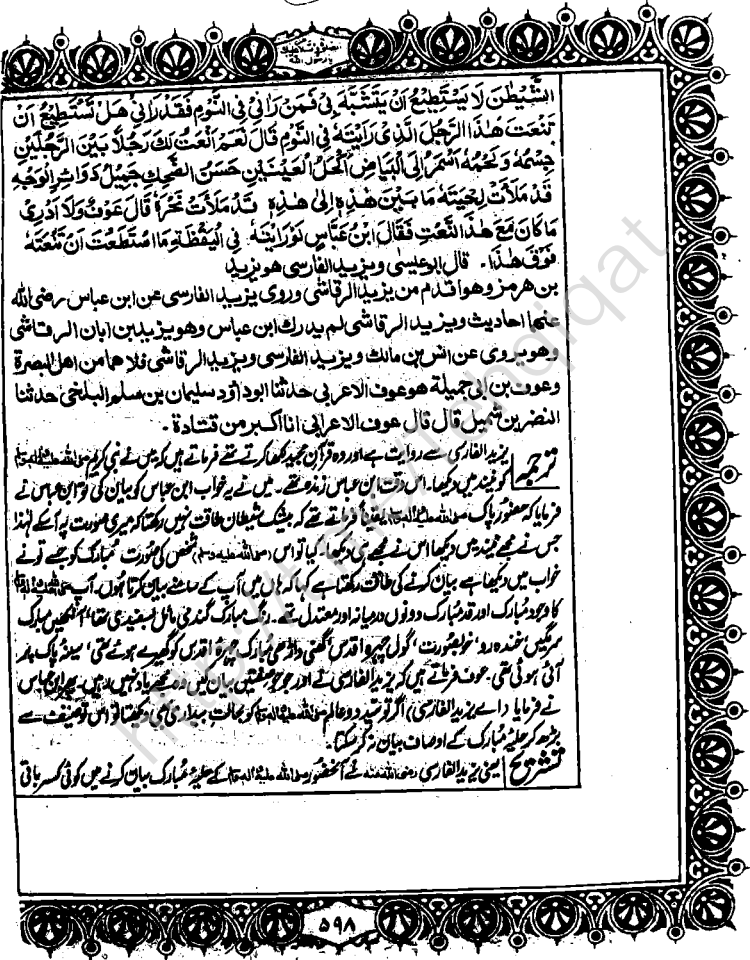 الشَّيْطٰنَ لَا يَسْتَطِيْعُ اَنْ يَّتَشَبَّهَ بِیْ فَمَنْ رَاٰنِیْ فِی النَّوْمِ فَقَدْ رَاٰنِیْ هَلْ تَسْتَطِيْعُ اَنْ
تَنْعَتَ هٰذَا الرَّجُلَ الَّذِیْ رَاَيْتَهٗ فِی النَّوْمِ قَالَ نَعَمْ اَنْعَتُ لَكَ رَجُلًا بَيْنَ الرَّجُلَيْنِ
جِسْمُهٗ وَلَحْمُهٗ اَسْمَرُ اِلَی الْبَيَاضِ اَكْحَلُ الْعَيْنَيْنِ حَسَنُ الضِّحْكِ جَمِيْلُ دَوَائِرِ الْوَجْهِ
قَدْ مَلَأَتْ لِحْيَتُهٗ مَا بَيْنَ هٰذِهٖ اِلٰی هٰذِهٖ قَدْ مَلَأَتْ نَحْرَهٗ قَالَ عَوْفٌ وَلَا اَدْرِیْ
مَا كَانَ مَعَ هٰذَا النَّعْتِ فَقَالَ ابْنُ عَبَّاسٍ لَوْ رَاَيْتَهٗ فِی الْيَقْظَةِ مَا اسْتَطَعْتَ اَنْ تَنْعَتَهٗ
فَوْقَ هٰذَا۔ قال ابو عیسیٰ ویزید الفارسی هو یزید
بن هرمز وهو اقدم من یزید الرقاشی وروی یزید الفارسی عن ابن عباس رضی الله
عنهما احادیث ویزید الرقاشی لم یدرك ابن عباس وهو یزید بن ابان الرقاشی
وهو یروی عن انس بن مالك ویزید الفارسی ویزید الرقاشی کلاهما من اهل البصرة
وعوف بن ابی جمیلة هو عوف الاعرابی حدثنا ابو داؤد سلیمان بن سلم البلخی حدثنا
النضر بن شمیل قال قال عوف الاعرابی انا اکبر من قتادة۔
ترجمہ یزید الفارسی سے روایت ہے اور وہ قرآن مجید لکھا کرتے تھے فرماتے ہیں کہ میں نے نبی کریم صلی اللہ علیہ وآلہ وسلم
کو نیند میں دیکھا۔ اس وقت ابن عباس زندہ تھے۔ میں نے یہ خواب ابن عباس کو بیان کی تو ابن عباس نے
فرمایا کہ حضور پاک صلی اللہ علیہ وآلہ وسلم یقیناً فرماتے تھے کہ بیشک شیطان طاقت نہیں رکھتا کہ میری صورت پہ آسکے لہٰذا
جس نے مجھے نیند میں دیکھا اس نے مجھے ہی دیکھا۔ کیا تو اس (صلی اللہ علیہ وسلم) شخص کی صورت مبارک کو جسے تو نے
خواب میں دیکھا ہے بیان کرنے کی طاقت رکھتا ہے کہا کہ ہاں میں آپ کے سامنے بیان کرتا ہوں۔ آپ صلی اللہ علیہ وآلہ وسلم
کا وجود مبارک اور قد مبارک دونوں درمیانہ اور معتدل تھے۔ رنگ مبارک گندمی مائل بسفیدی تھا، آنکھیں مبارک
سرمگیں، خندہ رو، خوبصورت، گول چہرہ اقدس، گھنی داڑھی مبارک چہرہ اقدس کو گھیرے ہوئے تھی، سینہ پاک پر
آئی ہوئی تھی۔ عوف فرماتے ہیں کہ یزید الفارسی نے اور جو جو صفتیں بیان کیں وہ مجھے یاد نہیں رہیں۔ پھر ابن عباس
نے فرمایا (اے یزید الفارسی) اگر تو سید دو عالم صلی اللہ علیہ وآلہ وسلم کو بحالت بیداری بھی دیکھتا تو اس توصیف سے
بڑھ کر حلیہ مبارک کے اوصاف بیان نہ کر سکتا۔
تشریح یعنی یزید الفارسی رضی اللہ عنہ نے آنحضور صلی اللہ علیہ وآلہ وسلم کے حلیہ مبارک بیان کرنے میں کوئی کسر باقی
۵۹۸